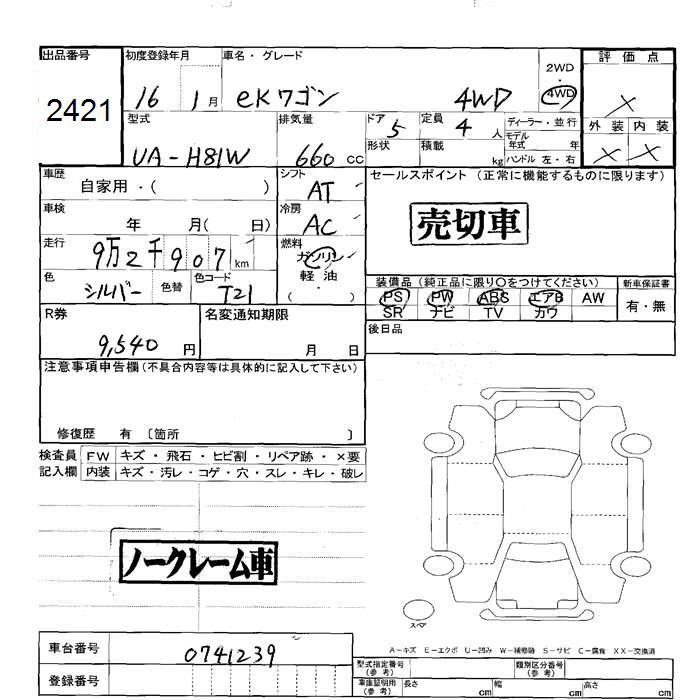 出品番号 初度登録年月 車名・グレード 2WD・4WD 評価点
2421 16 1月 eKワゴン 4WD ×
型式 排気量 ドア 定員 ディーラー・並行 外装 内装
UA-H81W 660 CC 5 4 人 モデル年式 年 × ×
形状 積載 kg ハンドル 左・右
車歴 自家用・( ) シフト AT セールスポイント (正常に機能するものに限ります)
車検 年 月( 日) 冷房 AC 売切車
走行 9万2千907 km 燃料 ガソリン
軽油
( ・ )
色 シルバー 色替 色コード T21
装備品 (純正品に限り〇をつけてください) 新車保証書
PS PW ABS エアB AW 有・無
SR ナビ TV カワ
R券 名変通知期限 後日品
9,540 円 月 日
注意事項申告欄(不具合内容等は具体的に記入して下さい)
修復歴 有 〔箇所 〕
検査員 FW キズ・飛石・ヒビ割・リペア跡・×要
記入欄 内装 キズ・汚レ・コゲ・穴・スレ・キレ・破レ
ノークレーム車
スペア
A−キズ E−エクボ U−凹み W−補修跡 S−サビ C−腐食 XX−交換済
車台番号 0741239
型式指定番号(参考) 類別区分番号(参考)
登録番号
車庫証明用(参考) 長さ cm 幅 cm 高さ cm